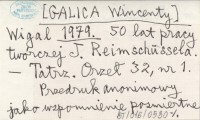 [GALICA Wincenty]
Wigal 1979. 50 lat pracy
twórczej J. Reimschüssela.
— Tatrz. Orzeł 32, nr 1.
Przedruk anonimowy
jako wspomnienie pośmiertne